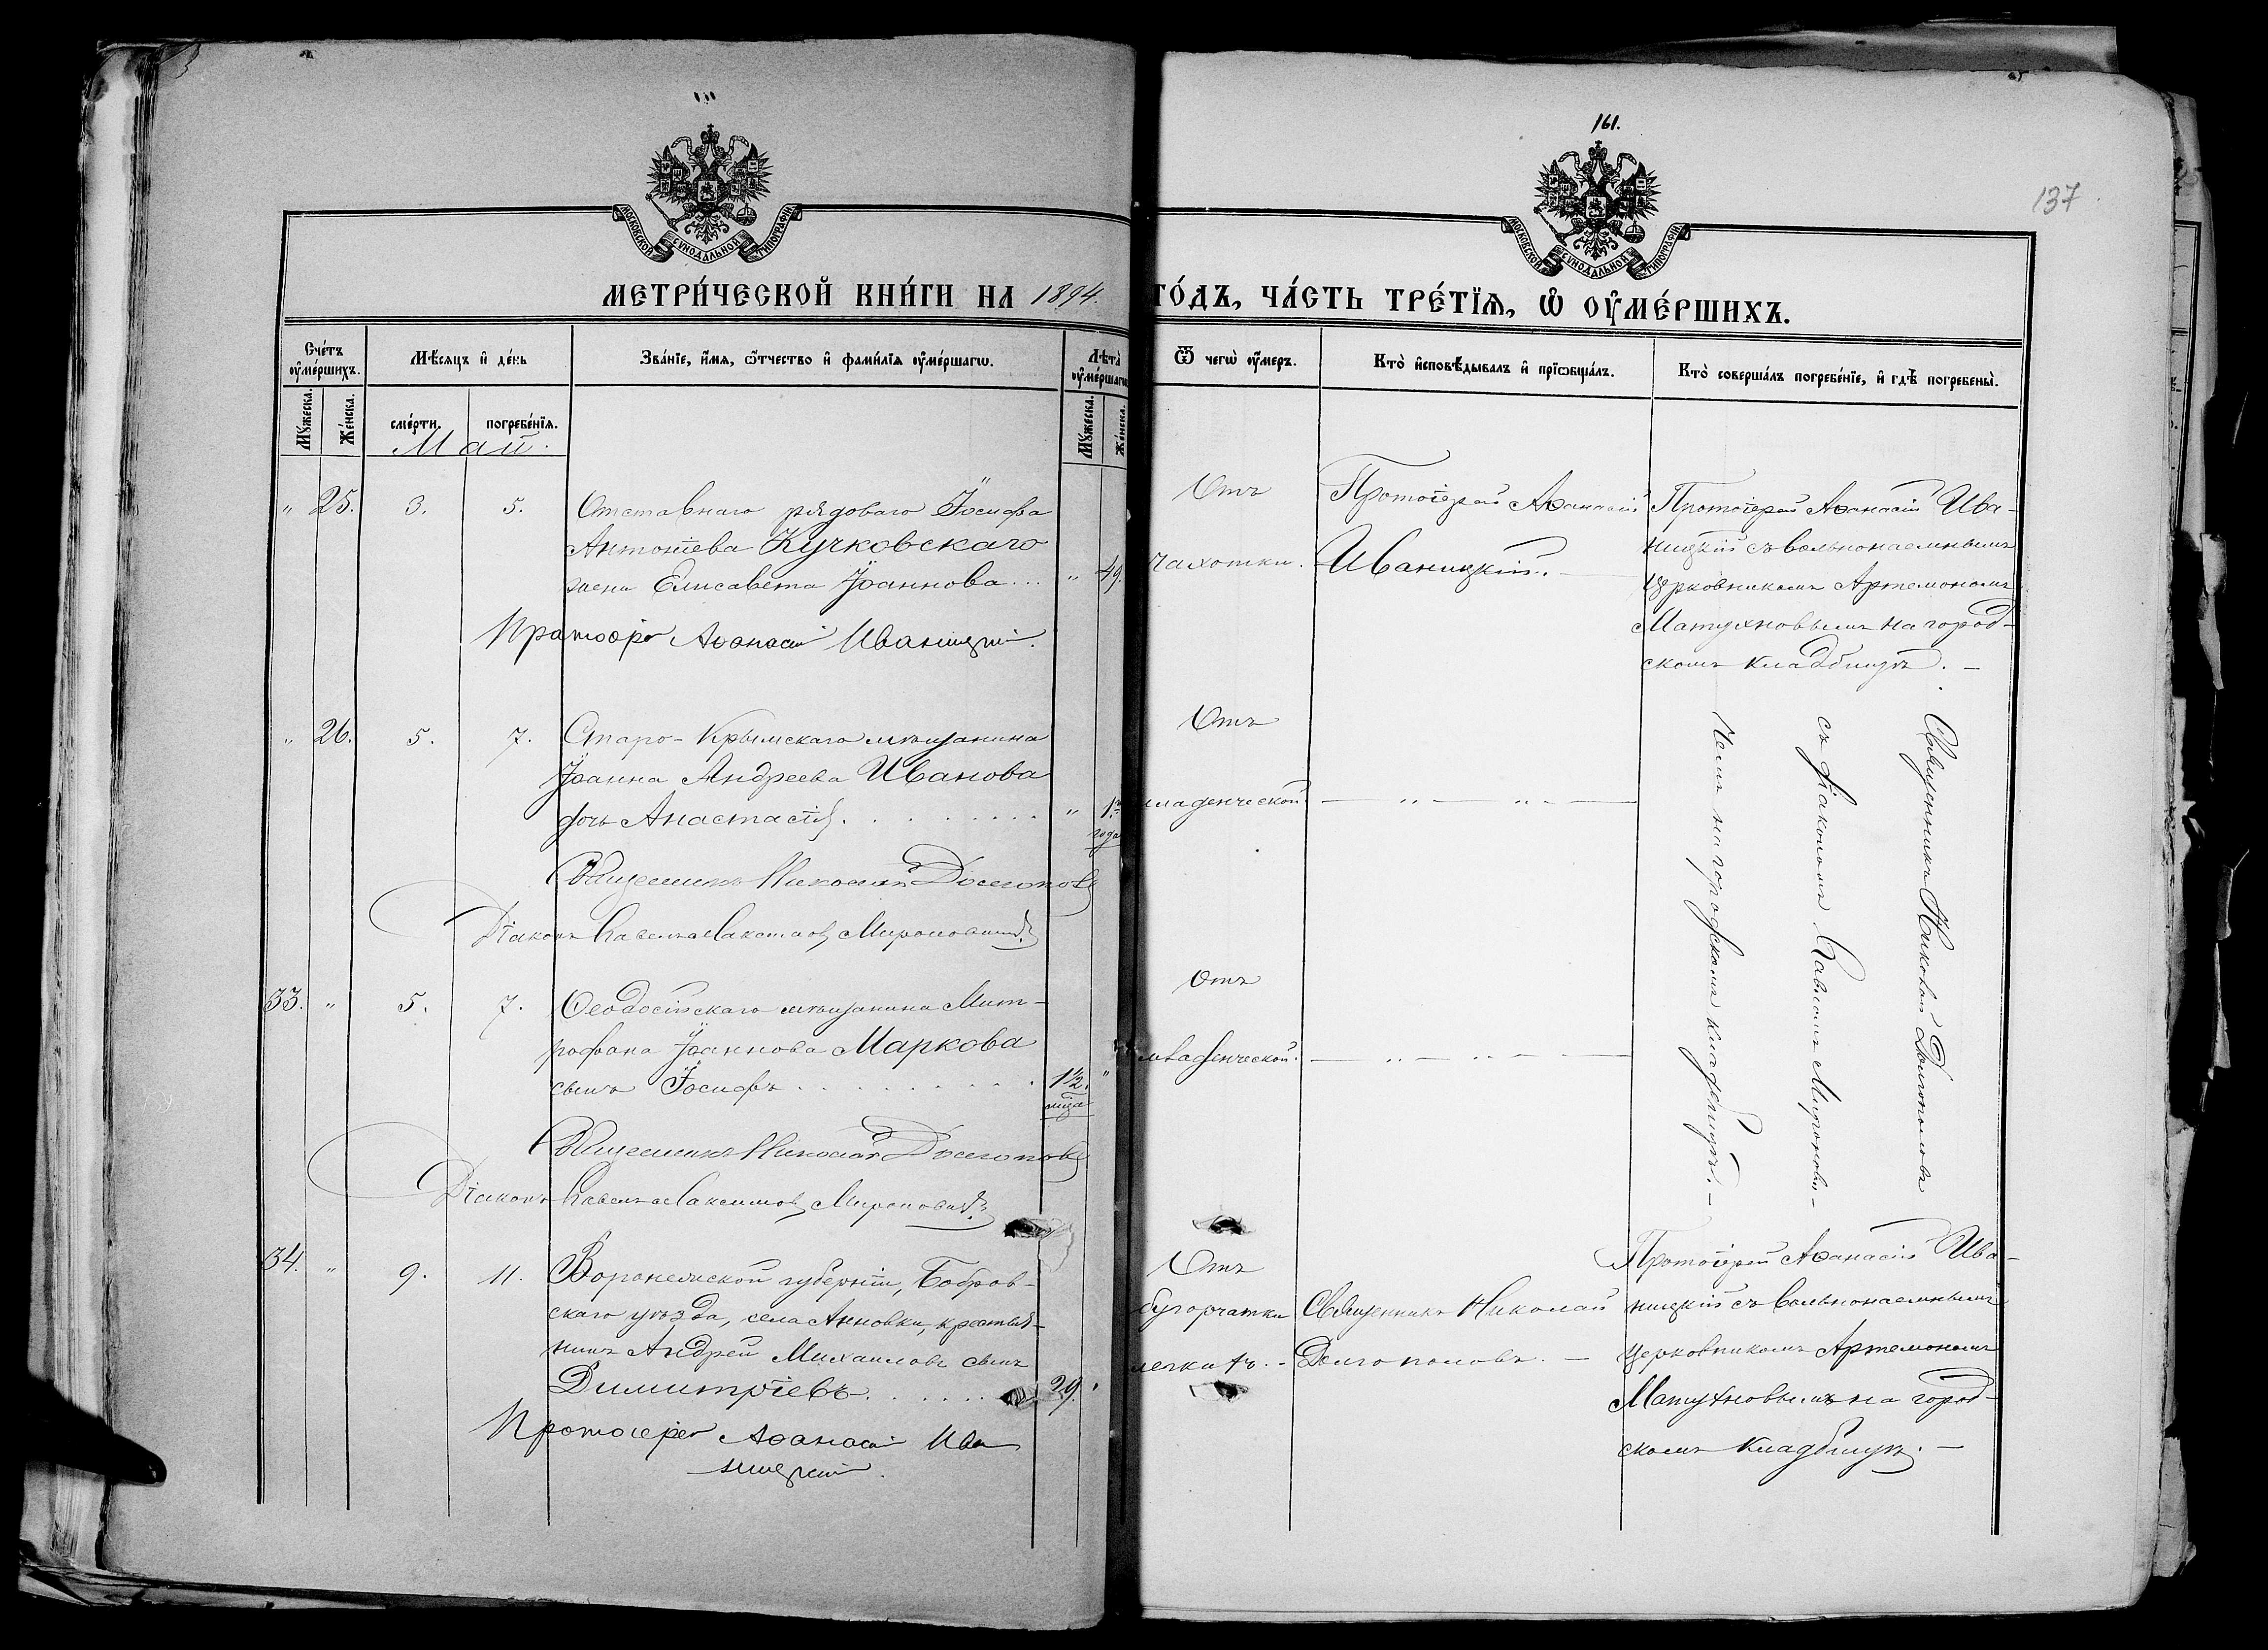 161.
137
МОСКОВСКОЙ СѴНОДАЛЬНОЙ ТИПОГРАФІИ
МОСКОВСКОЙ СѴНОДАЛЬНОЙ ТИПОГРАФІИ
МЕТРИ́ЧЕСКОЙ КНИ́ГИ НА 1894.
ГО́ДЪ, ЧА́СТЬ ТРЕ́ТІѦ, Ѡ҆ ОУ҆МЕ́РШИХЪ.
Сче́тъ оу҆ме́ршихъ.
Мꙋжеска.
Же́нска.
Мѣ́сѧцъ и҆ де́нь
сме́рти.
погребе́нїѧ.
Май.
Зва́нїе, и҆́мѧ, ѻ҆́тчество и҆ фами́лїѧ оу҆ме́ршагѡ.
Лѣта̀ оу҆ме́ршагѡ
Мꙋжеска.
Же́нска.
Ѿ чегѡ̀ оу҆́меръ.
Кто̀ и҆сповѣ́дывалъ и҆ прїѻбща́лъ.
Кто̀ соверша́лъ погребе́нїе, и҆ гдѣ̀ погребены̀.
" 25. 3. 5.
Отставнаго рядоваго Іосифа
Антоніева Кучковскаго
жена Елисавета Іоаннова... " 49.
Протоіерей Аѳанасій Иваницкій.
Отъ
чахотки.
Протоіерей Аѳанасій
Иваницкій.
Протоіерей Аѳанасій Ива-
ницкій съ вольнонаемнымъ
церковникомъ Артемономъ
Матухновымъ на город-
скомъ кладбищѣ. —
" 26. 5. 7.
Старо-Крымскаго мѣщанина
Іоанна Андреева Иванова
дочь Анастасія. . . . . . . . . " 1.
года
Священникъ Николай Долгополовъ
Діаконъ Павелъ Максимовъ Мироновичъ
Отъ
младенческой.
— " — " — —
Священникъ Николай Долгополовъ
съ діакономъ Павломъ Миронови-
чемъ на городскомъ кладбищѣ. —
33. " 5. 7.
Ѳеодосійскаго мѣщанина Мит-
рофана Іоаннова Маркова
сынъ Іосифъ. . . . . . . . . 1½. "
мца
Священникъ Николай Долгополовъ
Діаконъ Павелъ Максимовъ Мироновичъ
Отъ
младенческой.
— " — " — —
34. " 9. 11.
Воронежской губерніи, Бобров-
скаго уѣзда, села Анновки, крестья-
нинъ Андрей Михаиловъ сынъ
Димитріевъ. . . . . . 29.
Протоіерей Аѳанасій Ива
ницкій.
Отъ
бугорчатки
легкихъ. -
Священникъ Николай
Долгополовъ. —
Протоіерей Аѳанасій Ива-
ницкій съ вольнонаемнымъ
церковникомъ Артемономъ
Матухновымъ на город-
скомъ кладбищѣ. —